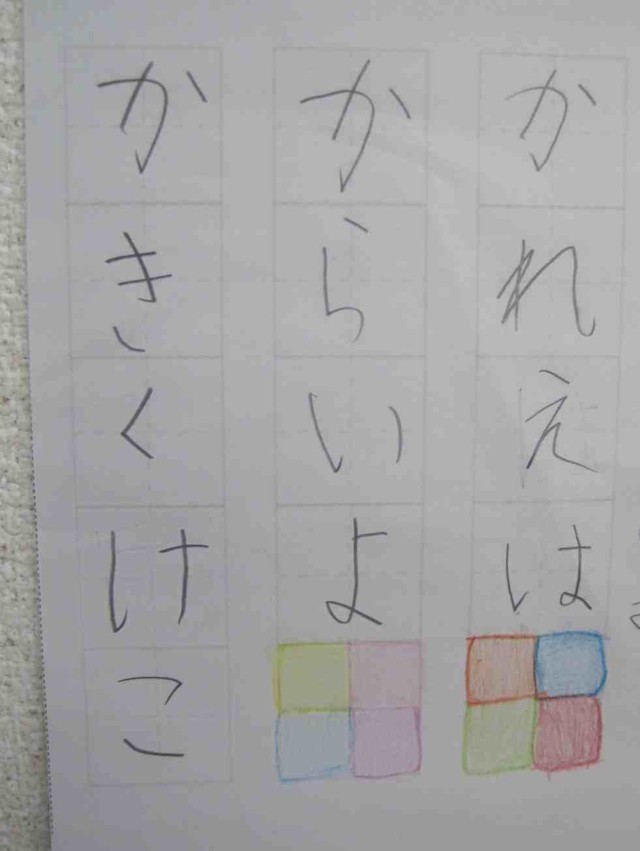 かれえは
からいよ
かきくけこ